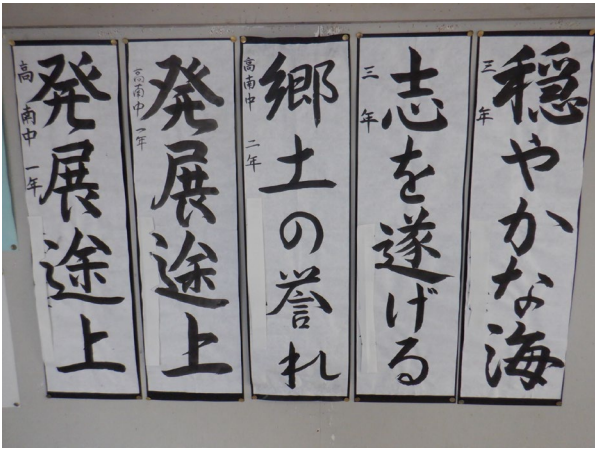 穏やかな海
三年
志を遂げる
三年
郷土の誉れ
高南中 二年
発展途上
高南中 一年
発展途上
高南中 一年